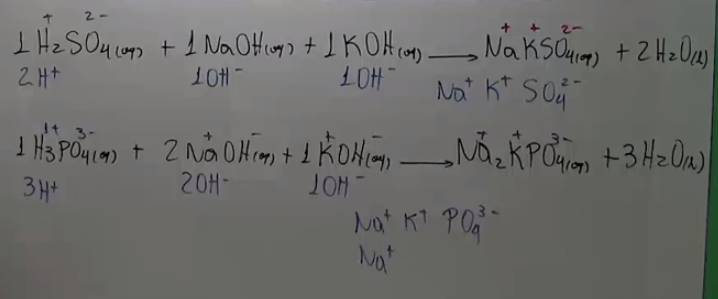 + 2- + + 2-
1 H₂SO₄(aq) + 1 NaOH(aq) + 1 KOH(aq) ⟶ NaKSO₄(aq) + 2 H₂O(l)
2H⁺ 1OH⁻ 1OH⁻ Na⁺ K⁺ SO₄²⁻
1+ 3- + - + - + + 3-
1 H₃PO₄(aq) + 2 NaOH(aq) + 1 KOH(aq) ⟶ Na₂KPO₄(aq) + 3 H₂O(l)
3H⁺ 2OH⁻ 1OH⁻
Na⁺ K⁺ PO₄³⁻
Na⁺